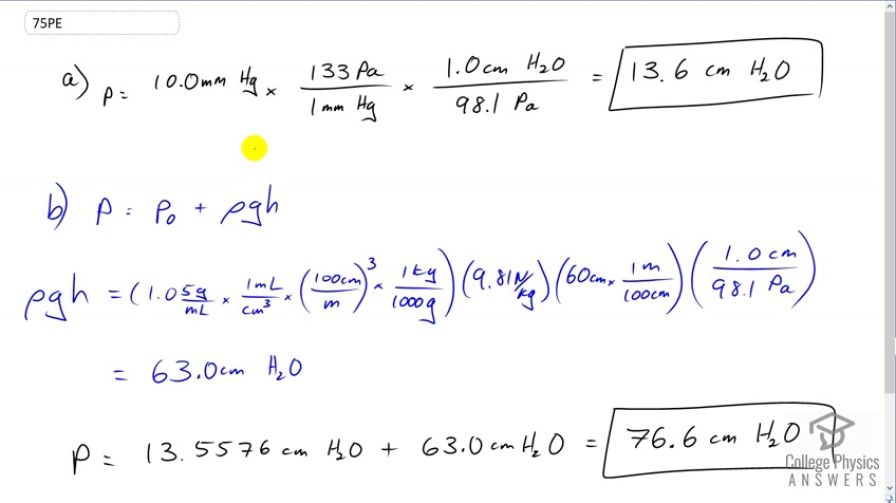 75PE
a) P = 10.0 mm Hg × 133 Pa / 1 mm Hg × 1.0 cm H₂O / 98.1 Pa = 13.6 cm H₂O
b) P = P₀ + ρgh
ρgh = (1.05 g/mL × 1 mL/cm³ × (100cm/m)³ × 1 kg/1000g) (9.81 N/kg) (60cm × 1 m/100cm) (1.0 cm/98.1 Pa)
= 63.0 cm H₂O
P = 13.5576 cm H₂O + 63.0 cm H₂O = 76.6 cm H₂O
College Physics
ANSWERS